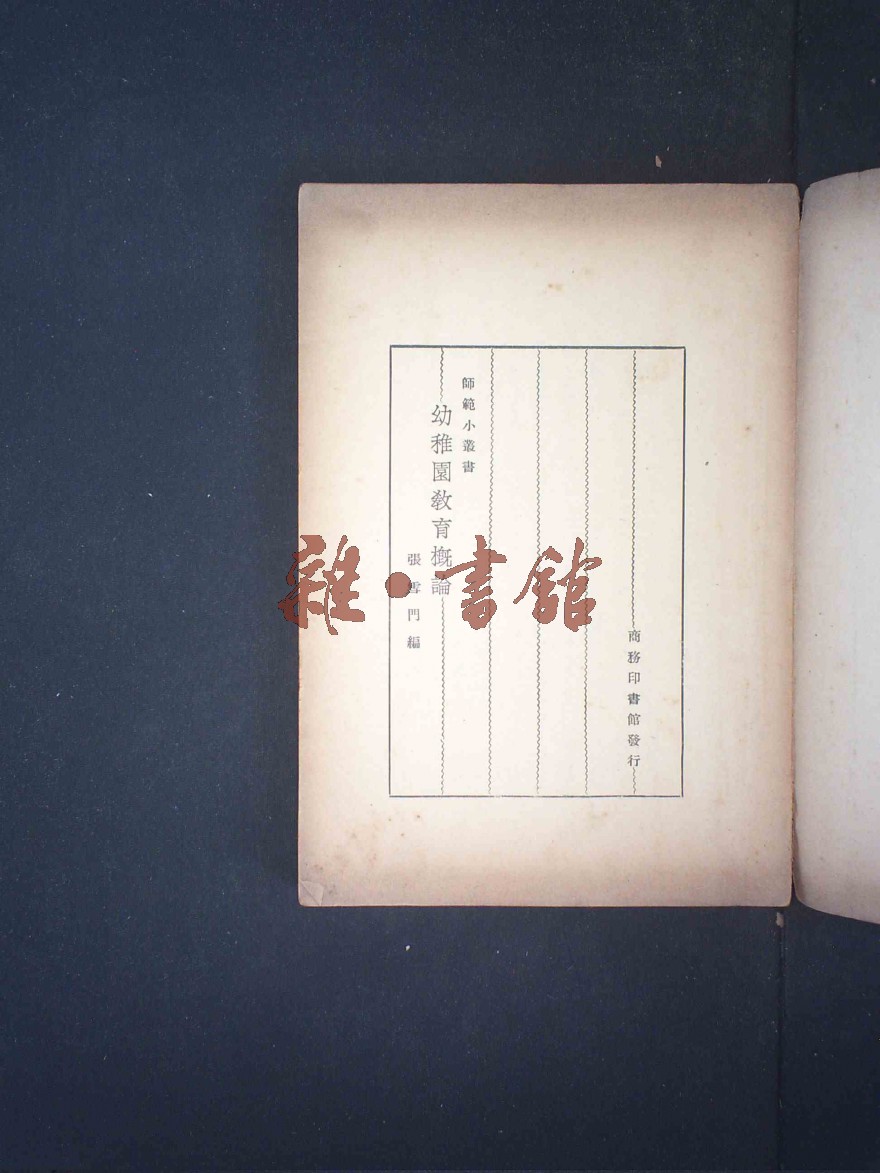 商務印書館發行
師範小叢書
幼稚園教育概論
張雪門編
雜·書館